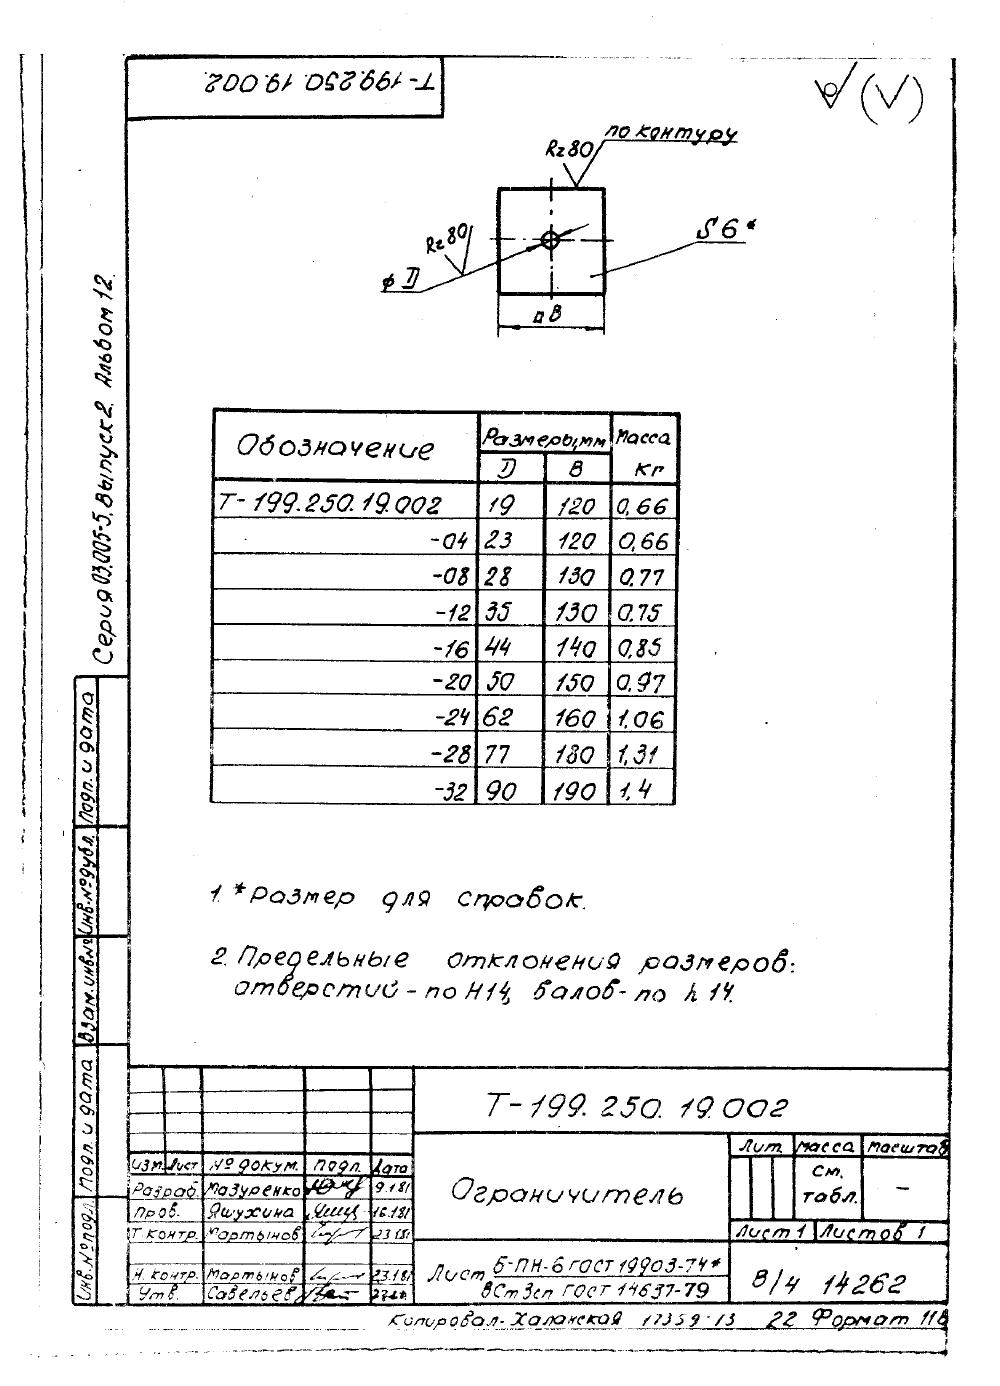 Т-199.250.19.002
по контуру
Rz80
Rz80
S6*
⌀D
□B
Серия 03.005-5, Выпуск 2. Альбом 12.
Обозначение Размеры, мм Масса кг
D B
Т-199.250.19.002 19 120 0,66
-04 23 120 0,66
-08 28 130 0,77
-12 35 130 0,75
-16 44 140 0,85
-20 50 150 0,97
-24 62 160 1,06
-28 77 180 1,31
-32 90 190 1,4
1. *Размер для справок.
2. Предельные отклонения размеров:
отверстий - по H14, валов - по h14.
Подп. и дата
Инв.№дубл.
Взам.инв.№
Подп. и дата
Инв.№подл.
Т-199.250.19.002
Изм. Лист № докум. Подп. Дата
Разраб. Мазуренко 9.1.81
Пров. Яшухина 16.1.81
Т. контр. Мартынов 23.1.81
Н. контр. Мартынов 23.1.81
Утв. Савельев
Ограничитель
Лит. Масса Масштаб
См. табл. –
Лист 1 Листов 1
Лист Б-ПН-6 ГОСТ 19903-74*
ВСт3сп ГОСТ 14637-79
В/4 14262
Копировал - Халанская 17359-13 22 Формат 11В